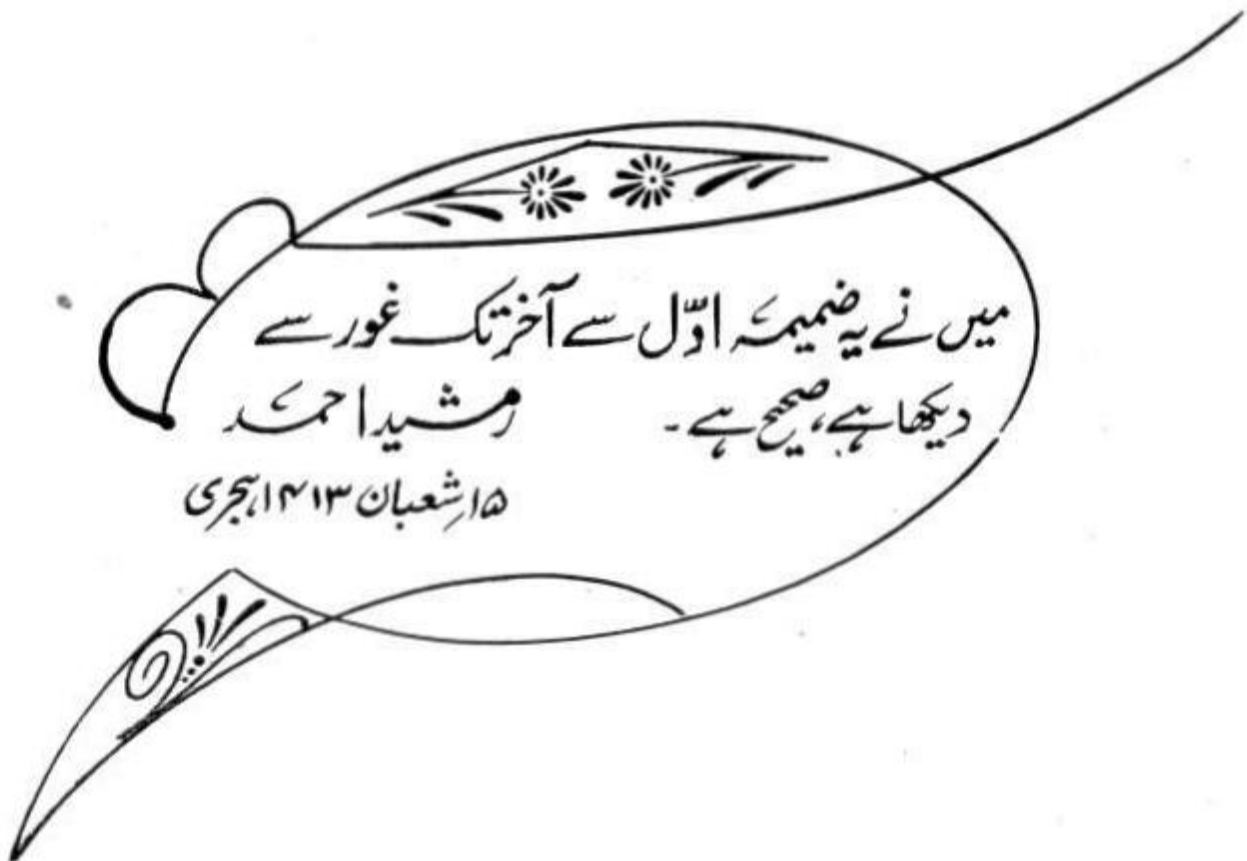 میں نے یہ ضمیمہ اوّل سے آخر تک غور سے
دیکھا ہے، صحیح ہے ۔ رشید احمد
۱۵ شعبان ۱۴۱۳ ہجری